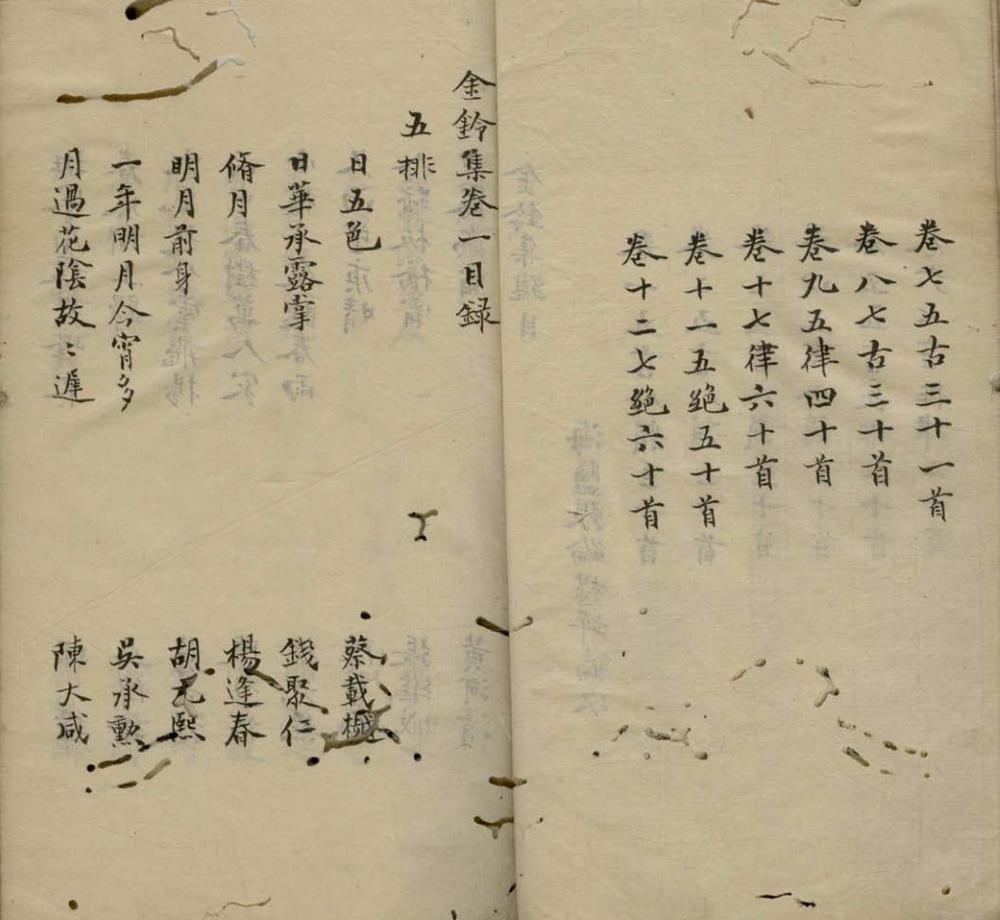 卷七五古三十一首
卷八七古三十首
卷九五律四十首
卷十七律六十首
卷十一五绝五十首
卷十二七绝六十首
金鈴集卷一目録
五排
日五色 蔡載樾
日華承露掌 錢聚仁
脩月 楊逢春
明月前身 胡元熙
一年明月今宵多 吳承勲
月過花陰故〻遲 陳大咸